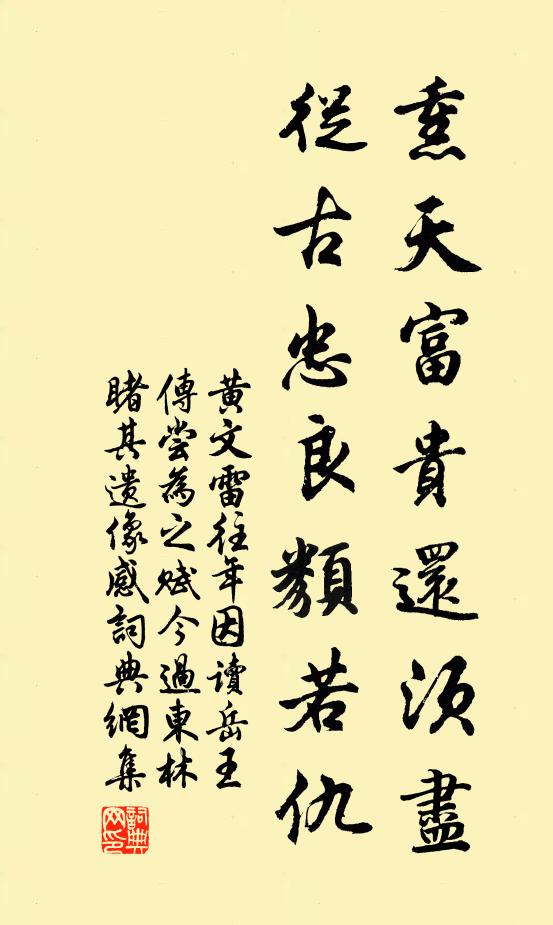 熏天富貴還須盡
從古忠良類若仇
黃文雷往年因讀岳王
傳嘗為之賦今過東林
睹其遺像感詞典網集
詞典
网印